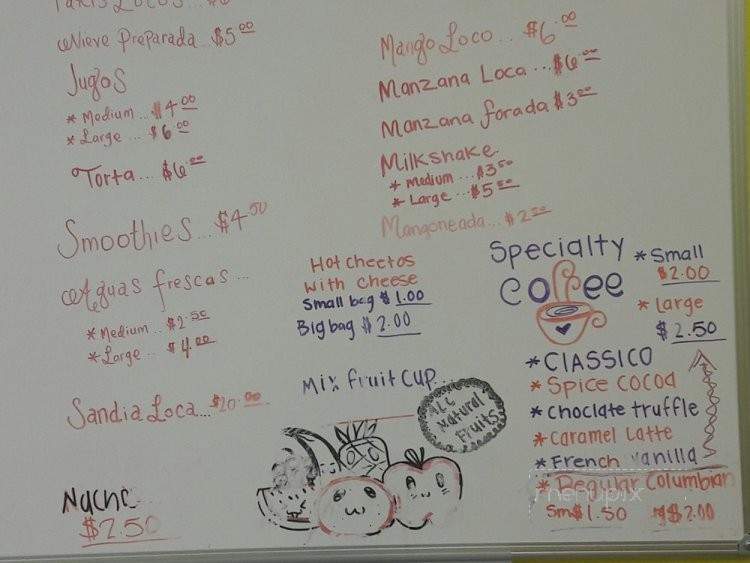 Nieve Preparada..$5.00
Jugos
* Medium... $4.00
* Large... $6.00
Torta... $6.00
Smoothies... $4.50
Aguas frescas...
* Medium... $2.50
* Large... $4.00
Sandia Loca... $20.00
Nacho
$2.50
Mango Loco... $6.00
Manzana Loca... $6.00
Manzana forada $3.00
Milkshake
* Medium... $3.50
* Large... $5.00
Mangoneada... $2.00
Hot cheetos
with cheese
Small bag $1.00
Big bag $2.00
Mix fruit cup...
ALL
Natural
Fruits
Specialty
Coffee
* Small
$2.00
* large
$2.50
* CLASSICO
* Spice cocoa
* choclate truffle
* caramel latte
* French vanilla
* Regular Columbian
Sm $1.50 $2.00
menupix